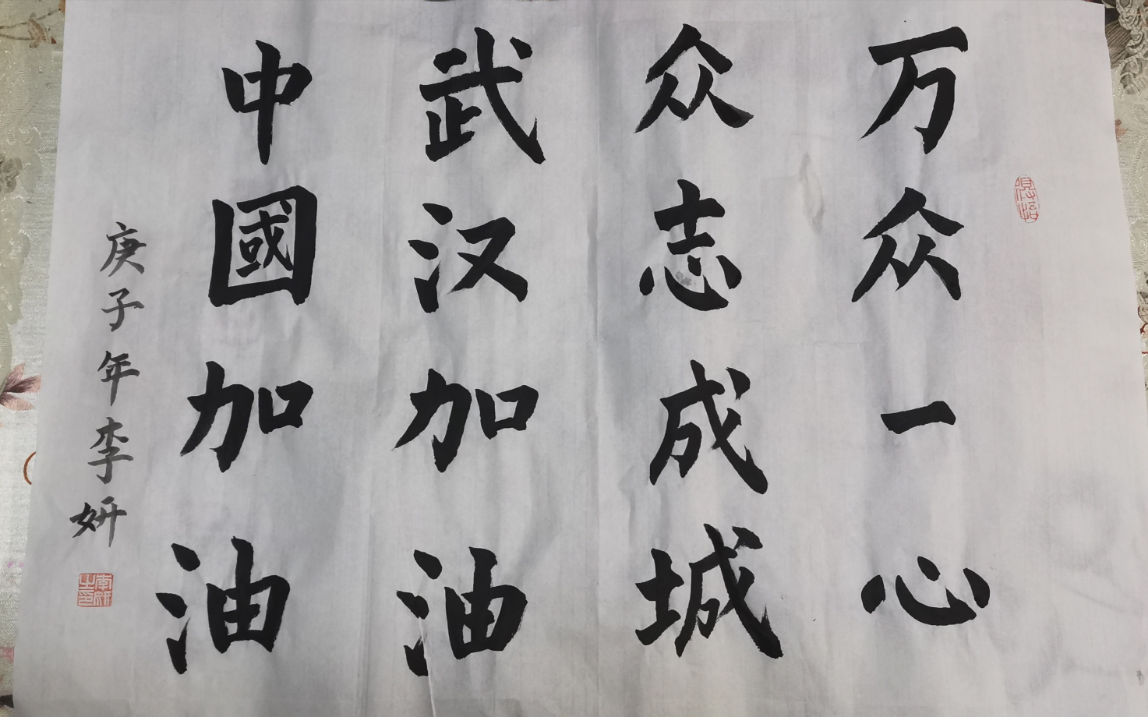 万众一心
众志成城
武汉加油
中國加油
庚子年李妍